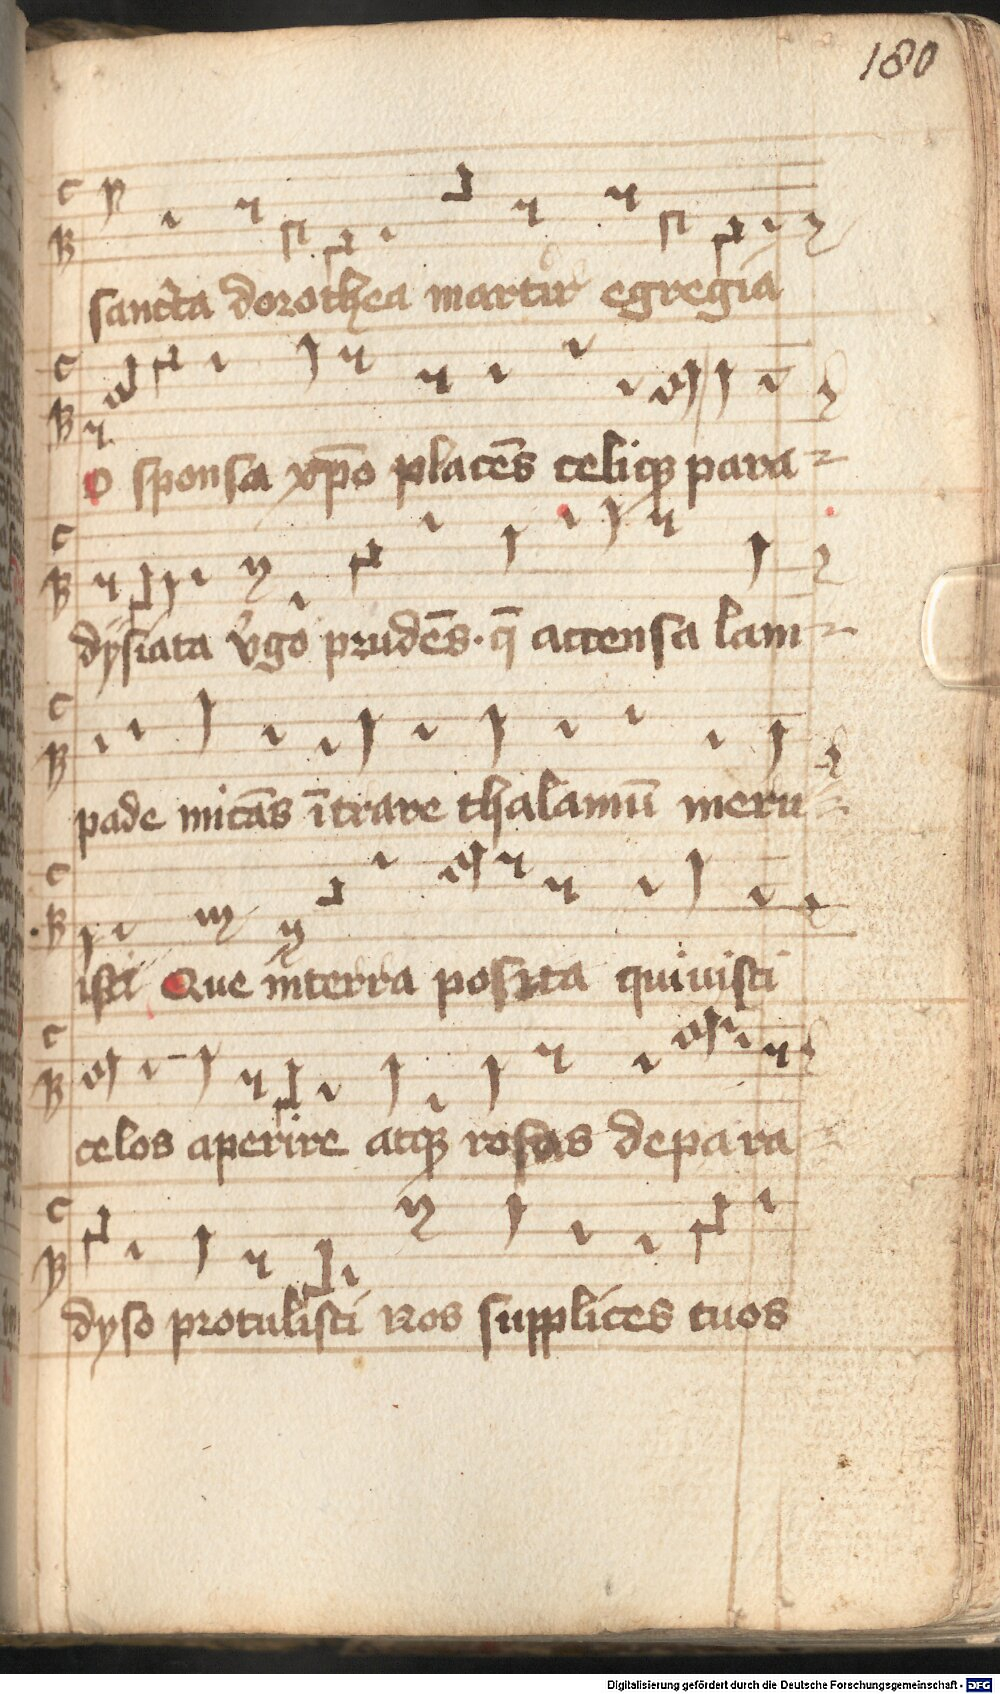 180
sancta dorothea martir egregia
O sponsa xp̄o placēs celicqȝ para
dysiata v̓go prudēs. q̄ accensa lam
pade micās ītrare thalamū meru
isti Que interra posita quiuisti
celos aperire atqȝ rosas depara
dyso protulisti Nos supplices tuos
Digitalisierung gefördert durch die Deutsche Forschungsgemeinschaft - DFG